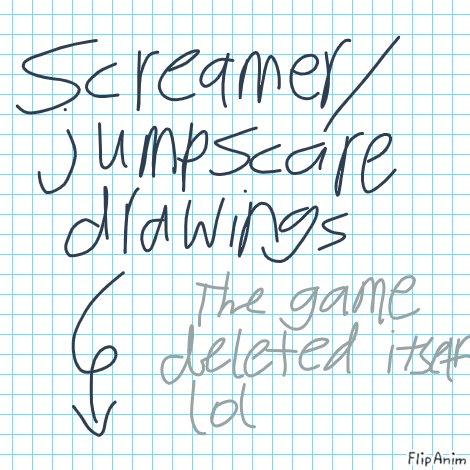 Screamer/
jumpscare
drawings
The game
deleted itself
lol
FlipAnim